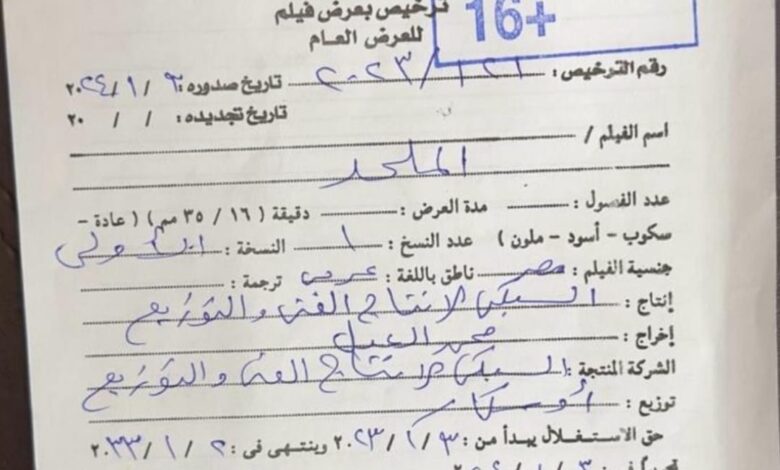 ترخيص بعرض فيلم
للعرض العام
16+
رقم الترخيص : ١٢١ / ٢٠٢٣ تاريخ صدوره : ٣ / ١ / ٢٠٢٤
تاريخ تجديده : / / ٢٠
اسم الفيلم /
الملحد
عدد الفصول : مدة العرض : دقيقة ( ١٦ / ٣٥ مم ) ( عادة -
سكوب - أسود - ملون ) عدد النسخ : ١ النسخة : الأولى
جنسية الفيلم : مصر ناطق باللغة : عربى ترجمة :
إنتاج : السبكى للانتاج الفنى والتوزيع
إخراج : محمد العدل
الشركة المنتجة : السبكى للانتاج الفنى والتوزيع
توزيع : أوسكار
حق الاستغلال يبدأ من : ٣ / ١ / ٢٠٢٣ وينتهى فى : ٢ / ١ / ٢٠٣٣